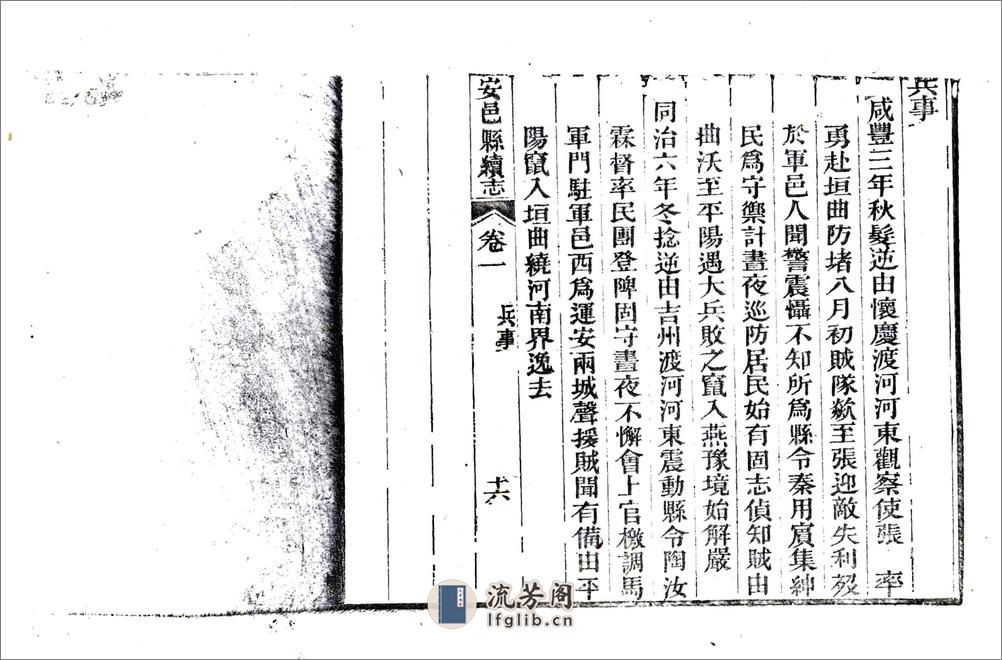 兵事
咸豐三年秋髮逆由懷慶渡河河東觀察使張 率
勇赴垣曲防堵八月初賊隊欻至張迎敵失利歿
於軍邑人聞警震懾不知所爲縣令秦用賓集紳
民爲守禦計晝夜巡防居民始有固志偵知賊由
曲沃至平陽遇大兵敗之竄入燕豫境始解嚴
同治六年冬捻逆由吉州渡河河東震動縣令陶汝
霖督率民團登陴固守晝夜不懈會上官檄調馬
軍門駐軍邑西爲運安兩城聲援賊聞有備由平
陽竄入垣曲繞河南界逸去
安邑縣續志 卷一 兵事 十六
流芳阁
lfglib.cn